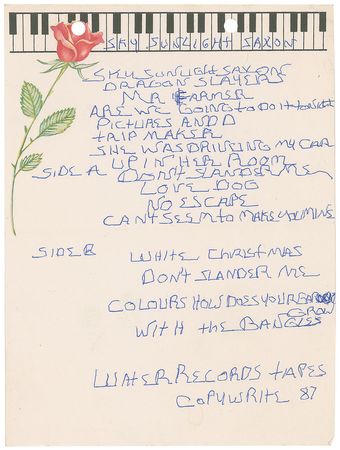 SKY SUNLIGHT SAXON
SKY SUNLIGHT SAXON
DRAGON SLAYERS
MR FARMER
ARE WE GOING to DO it toNight
PICTURES AND D
tRIP MAKER
SHE WAS DRIVING MY CAR
UP IN HER ROOM
SIDE A DON'T SLANDER ME
LOVE DOG
NO ESCAPE
CANT SEEM to MAKE YOU MINE
SIDE B WHITE CHRISTMAS
DON'T SLANDER ME
COLOURS HOW DOES YOUR GARDEN
GROW
WITH the BANGLES
WATER RECORDS tAPES
COPYWRITE 87